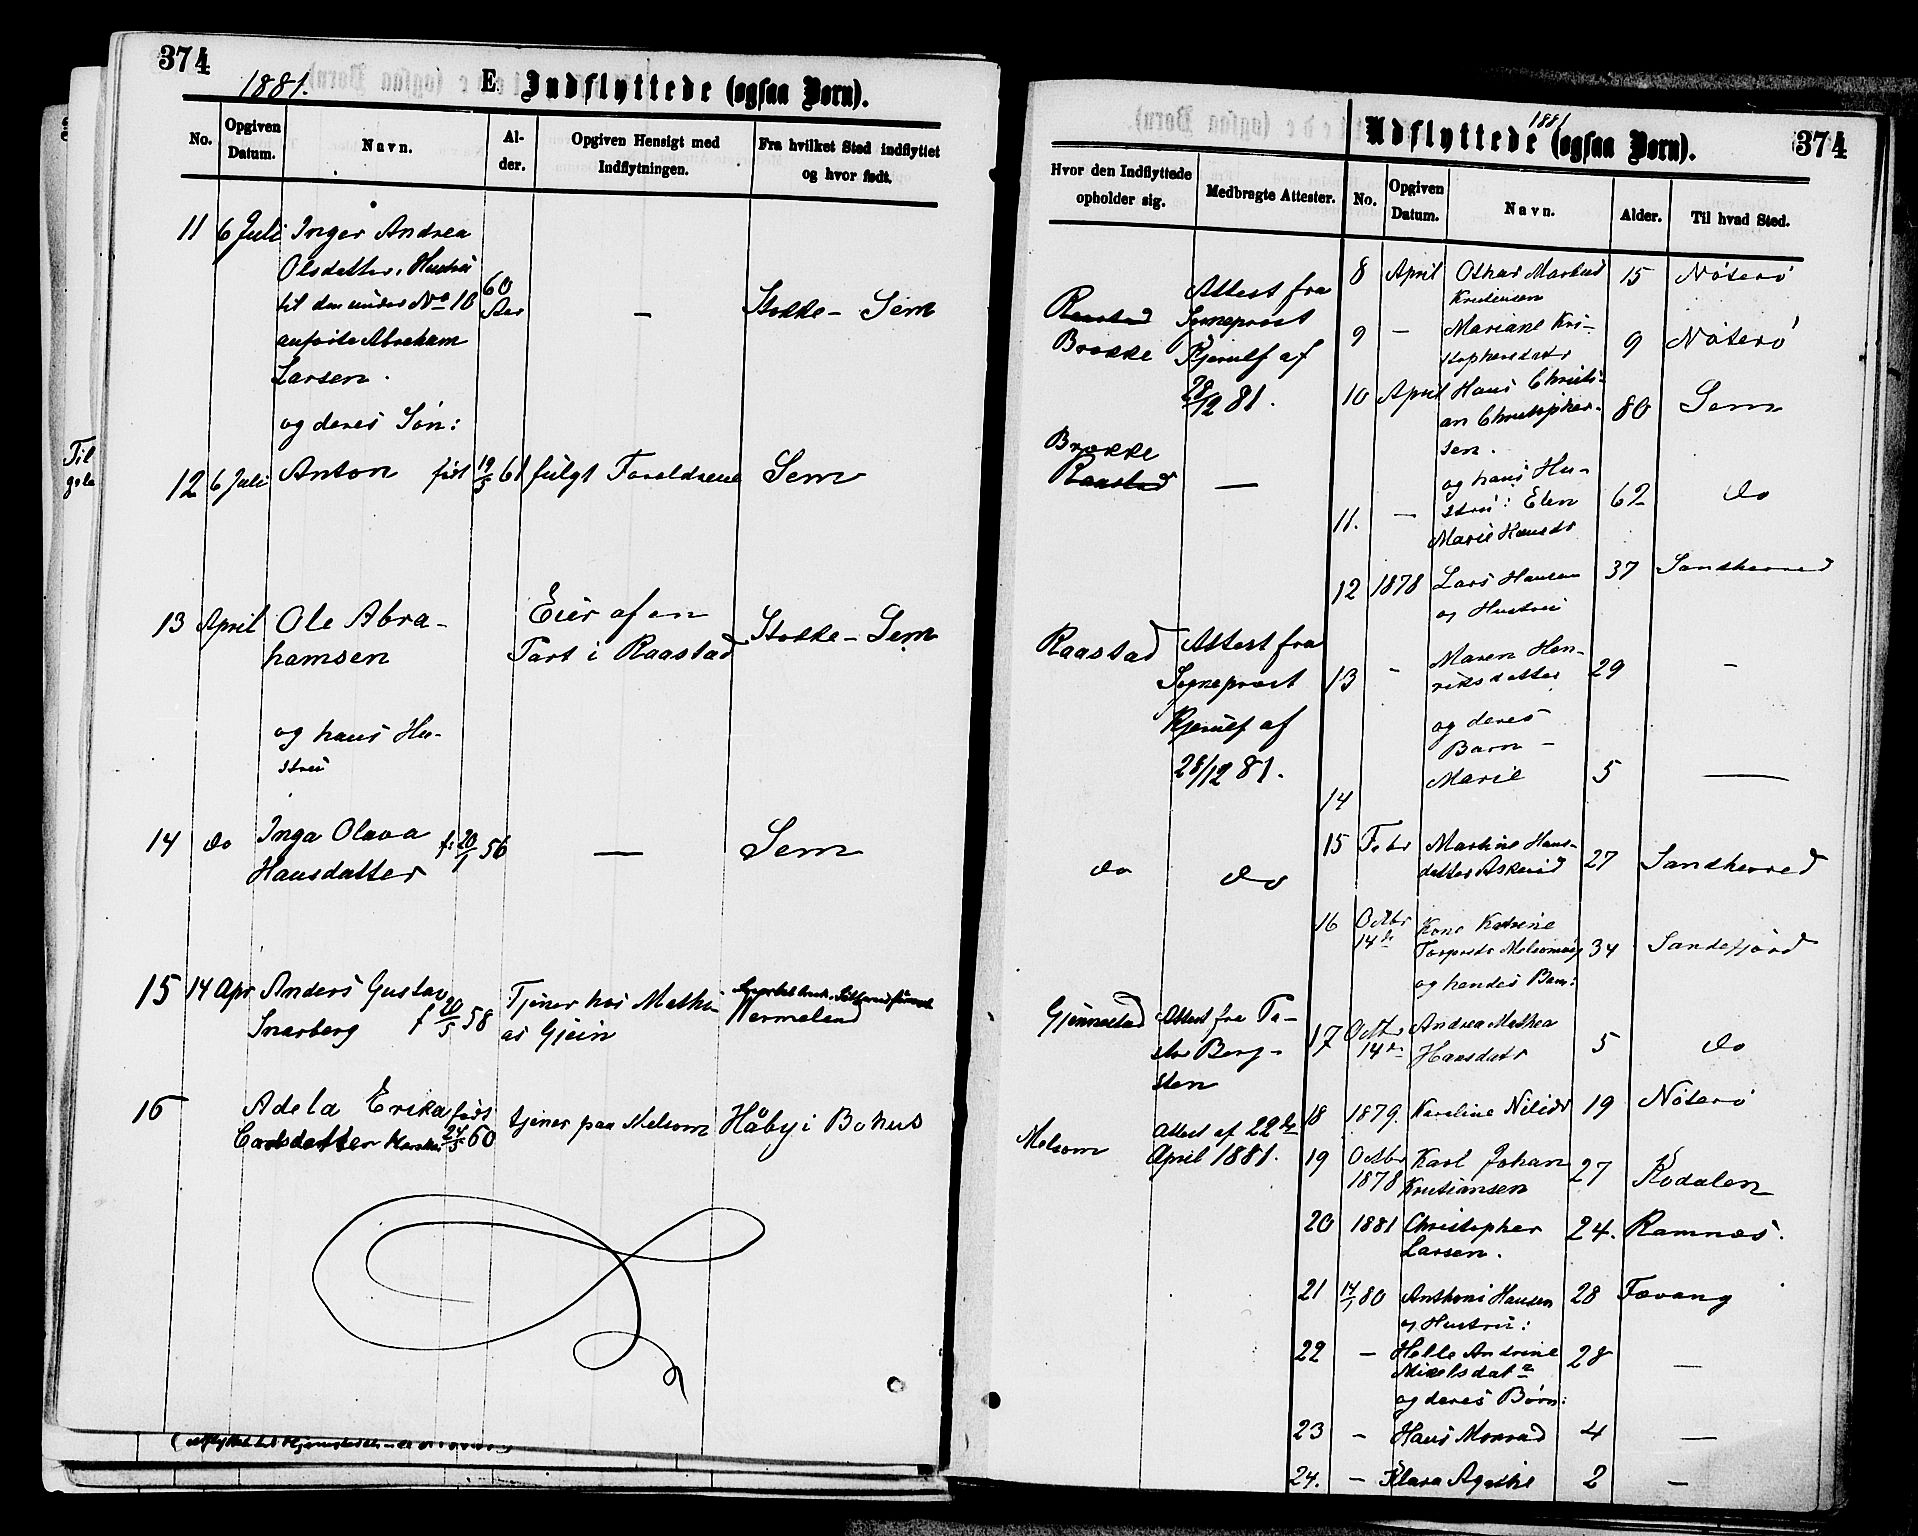 374
1881.
E Indflyttede (ogsaa Børn).
No.
Opgiven Datum.
Navn.
Al-
der.
Opgiven Hensigt med
Indflytningen.
Fra hvilket Sted indflyttet
og hvor født.
11 6 Juli Inger Andrea
Olsdatter, Hustru
til den under No 10 60 Aar
anførte Abraham — Stokke - Sem
Larsen.
og deres Søn:
12 6 Juli Anton født 19/5 61 fulgt Forældrene Sem
13 April Ole Abra- Eier af en Stokke - Sem
hamsen Part i Raastad
og hans Hu-
stru
14 do Inga Olava f. 20/1 56 — Sem
Hansdatter
15 14 Apr Anders Gustav Tjener hos Mathi-
Snarberg f 20/5 58 as Gjein Vermeland
16 Adela Erika født tjener paa Melsom Håby i Bohus
Carlsdatter 24/5 60
Til
1881
Udflyttede (ogsaa Børn).
374
Hvor den Indflyttede
opholder sig.
Medbragte Attester.
No.
Opgiven
Datum.
Navn.
Alder.
Til hvad Sted.
Raastad
Brække
Attest fra
Sogneprost
Kjerulf af
28/12 81.
Brække
Raastad —
Raastad Attest fra
Sogneprost
Kjerulf af
28/12 81.
do do
Gjennestad Attest fra Pa-
stor Berg-
sten
Melsom Attest af 22de
April 1881.
8 April Othar Markus 15 Nøterø
Kristensen
9 — Mariane Kri- 9 Nøterø
stophersdatr
10 April Hans Christi-
an Christopher- 80 Sem
sen.
og hans Hu-
11. — stru: Elen 62 do
Marie Hansdr
12 1878 Lars Hansen 37 Sandherred
og Hustru
13 - Maren Hen- 29 -
riksdatter
og deres
Barn -
14 Marie 5 —
15 Febr Martine Hans- 27 Sandherred
datter Askerød
16 Octbr Katrine
14de Melsomvig 34 Sandefjord
og hendes Barn:
17 Octbr Andrea Mathea
14de Hansdatr 5 do
18 1879. Karoline Nilsdr 19 Nøterø
19 Octbr Karl Johan 27 Kodalen
1878 Kristiansen
20 1881 Christopher 24. Ramnæs.
Larsen.
21 14/1 80 Anthoni Hansen 28 Fævang
og Hustru:
22 — Helle Andrine 28 —
Mikelsdatr
og deres Børn:
23 - Hans Monrad 4 —
24. - Klara Agathe 2 —